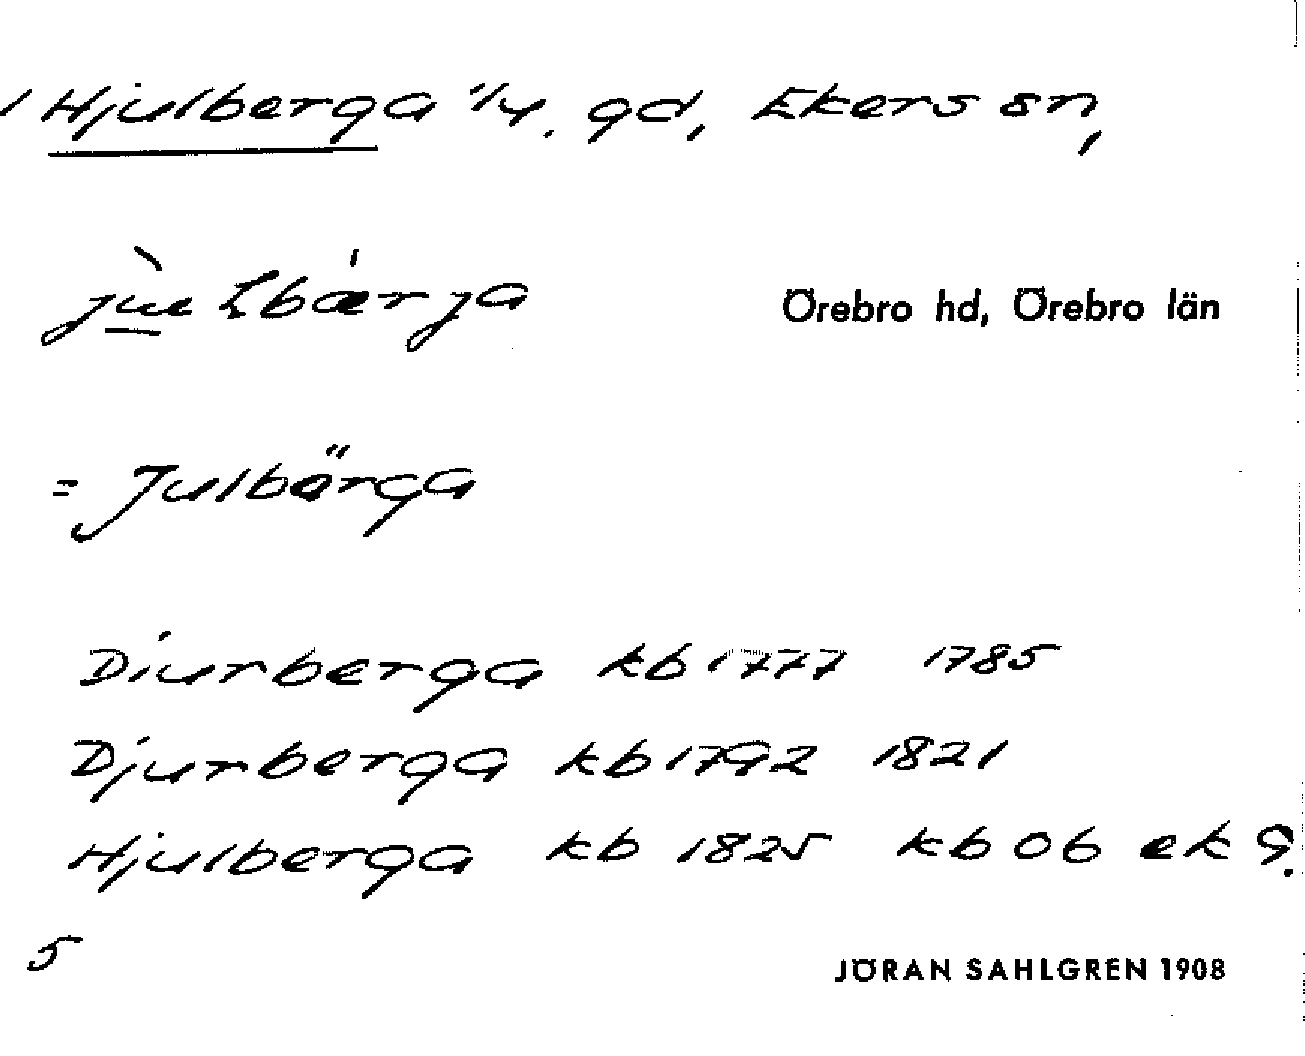 Hjulberga 1/4. gd, Ekers sn,
Örebro hd, Örebro län
= Julbärga
Diurberga kb 1777 1785
Djurberga kb 1792 1821
Hjulberga kb 1825 kb 06 ek 9.
5
JÖRAN SAHLGREN 1908